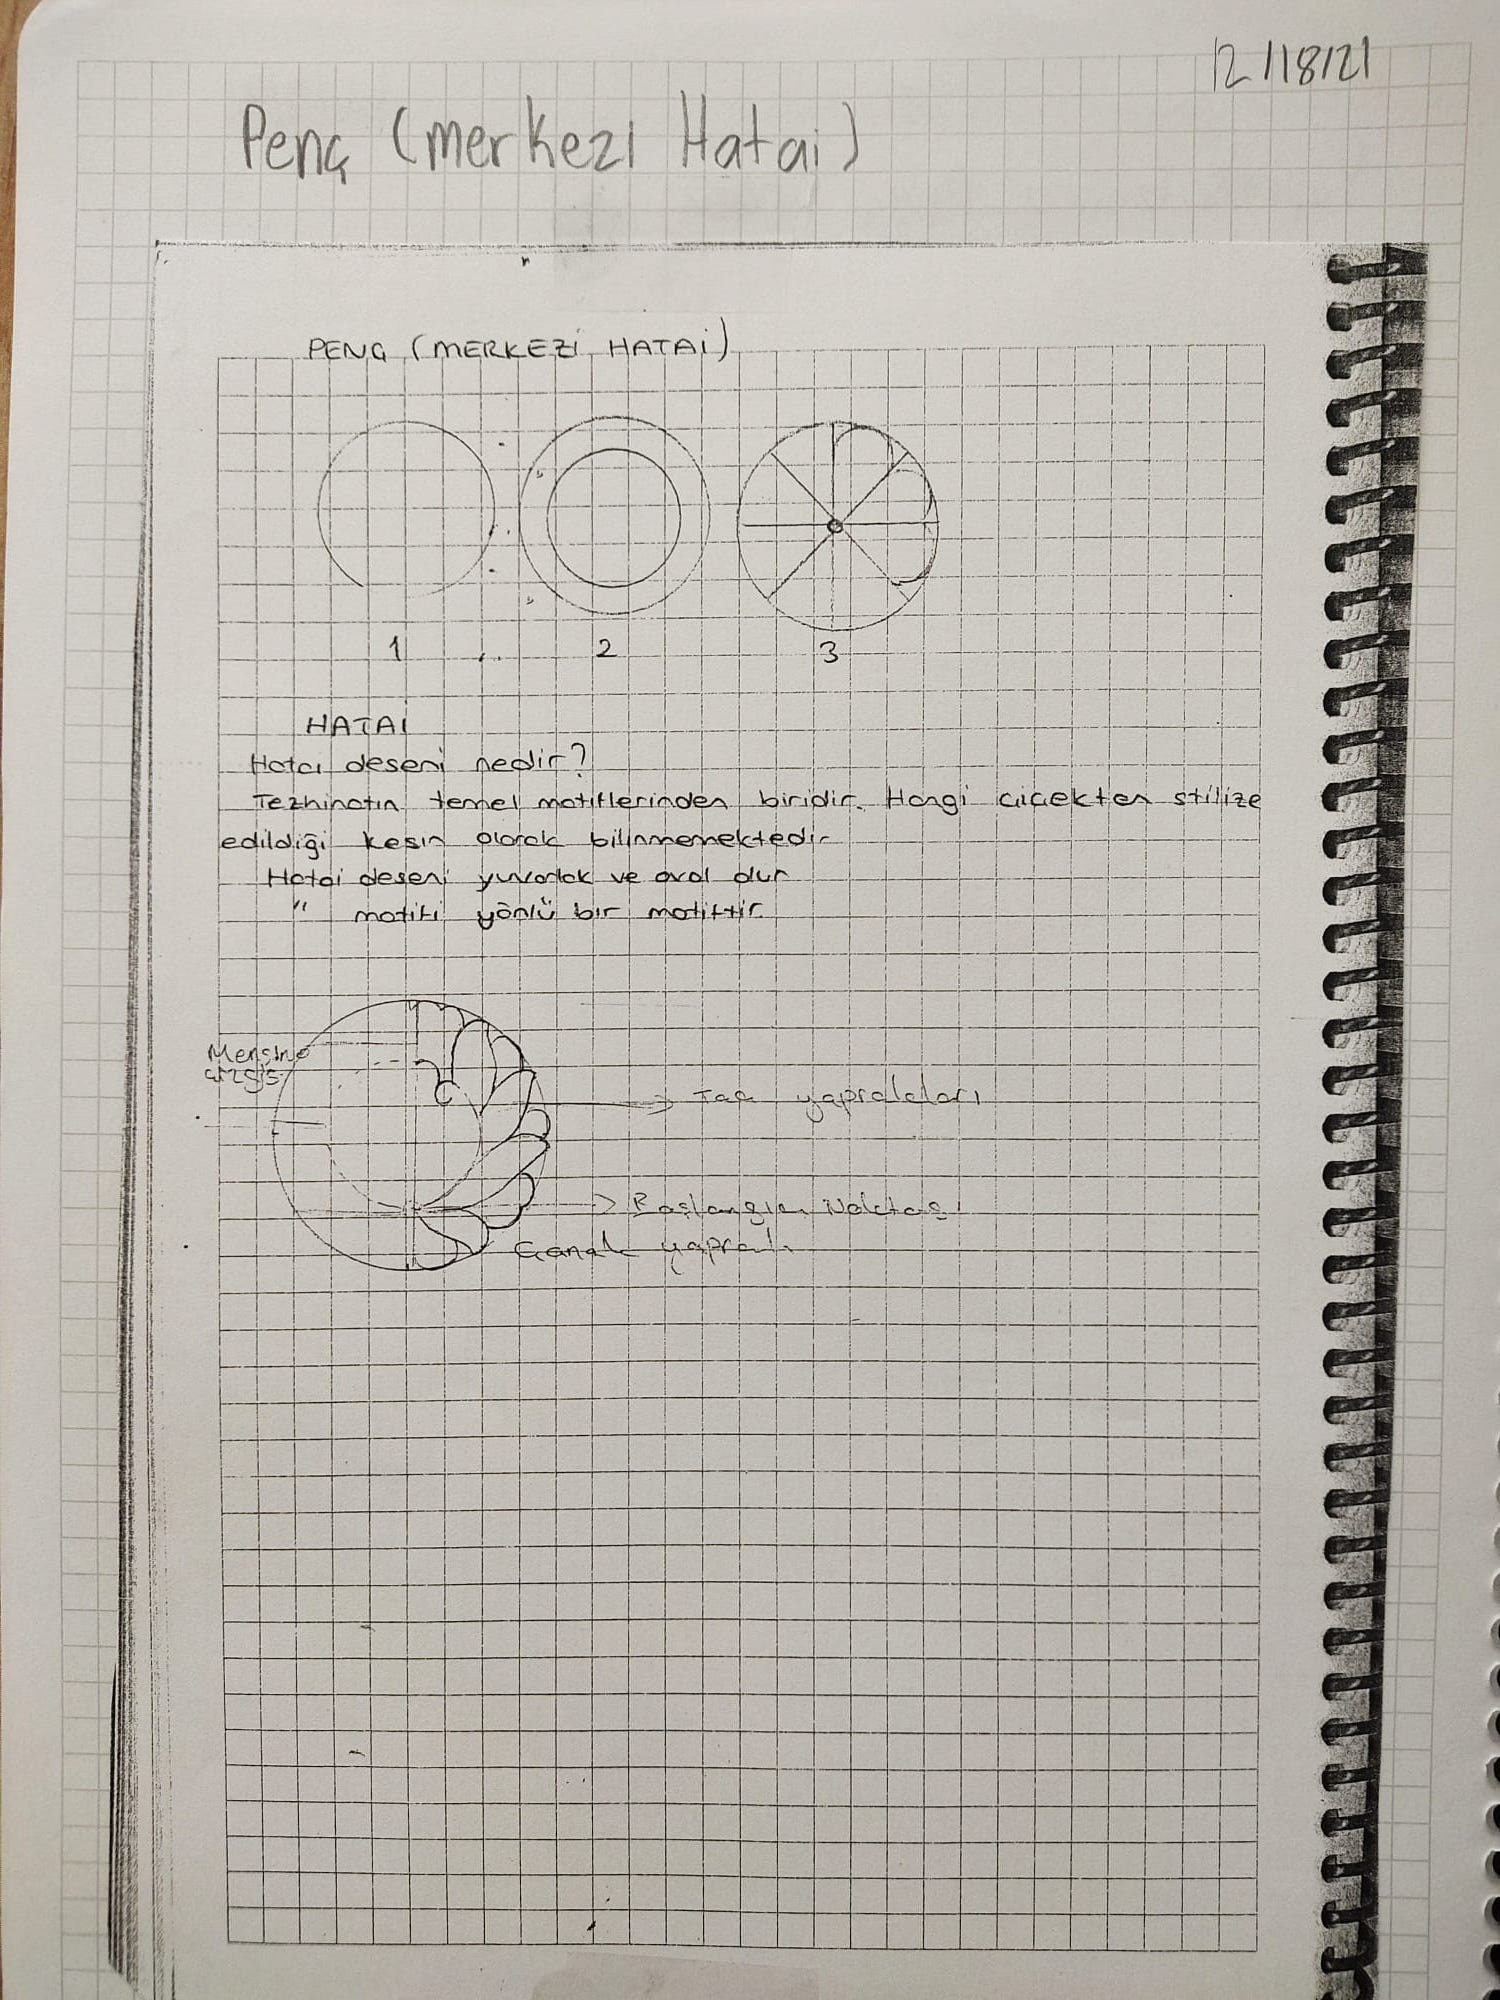 12/18/21
Penç (merkezi Hatai)
PENÇ (MERKEZİ HATAİ)
1 2 3
HATAİ
Hatai deseni nedir?
Tezhinatın temel motiflerinden biridir. Hangi çiçekten stilize
edildiği kesin olarak bilinmemektedir
Hatai deseni yuvarlak ve oval dur
" motifi yönlü bir motiftir.
Taç yaprakları
Başlangıç Noktası
Çanak yaprak